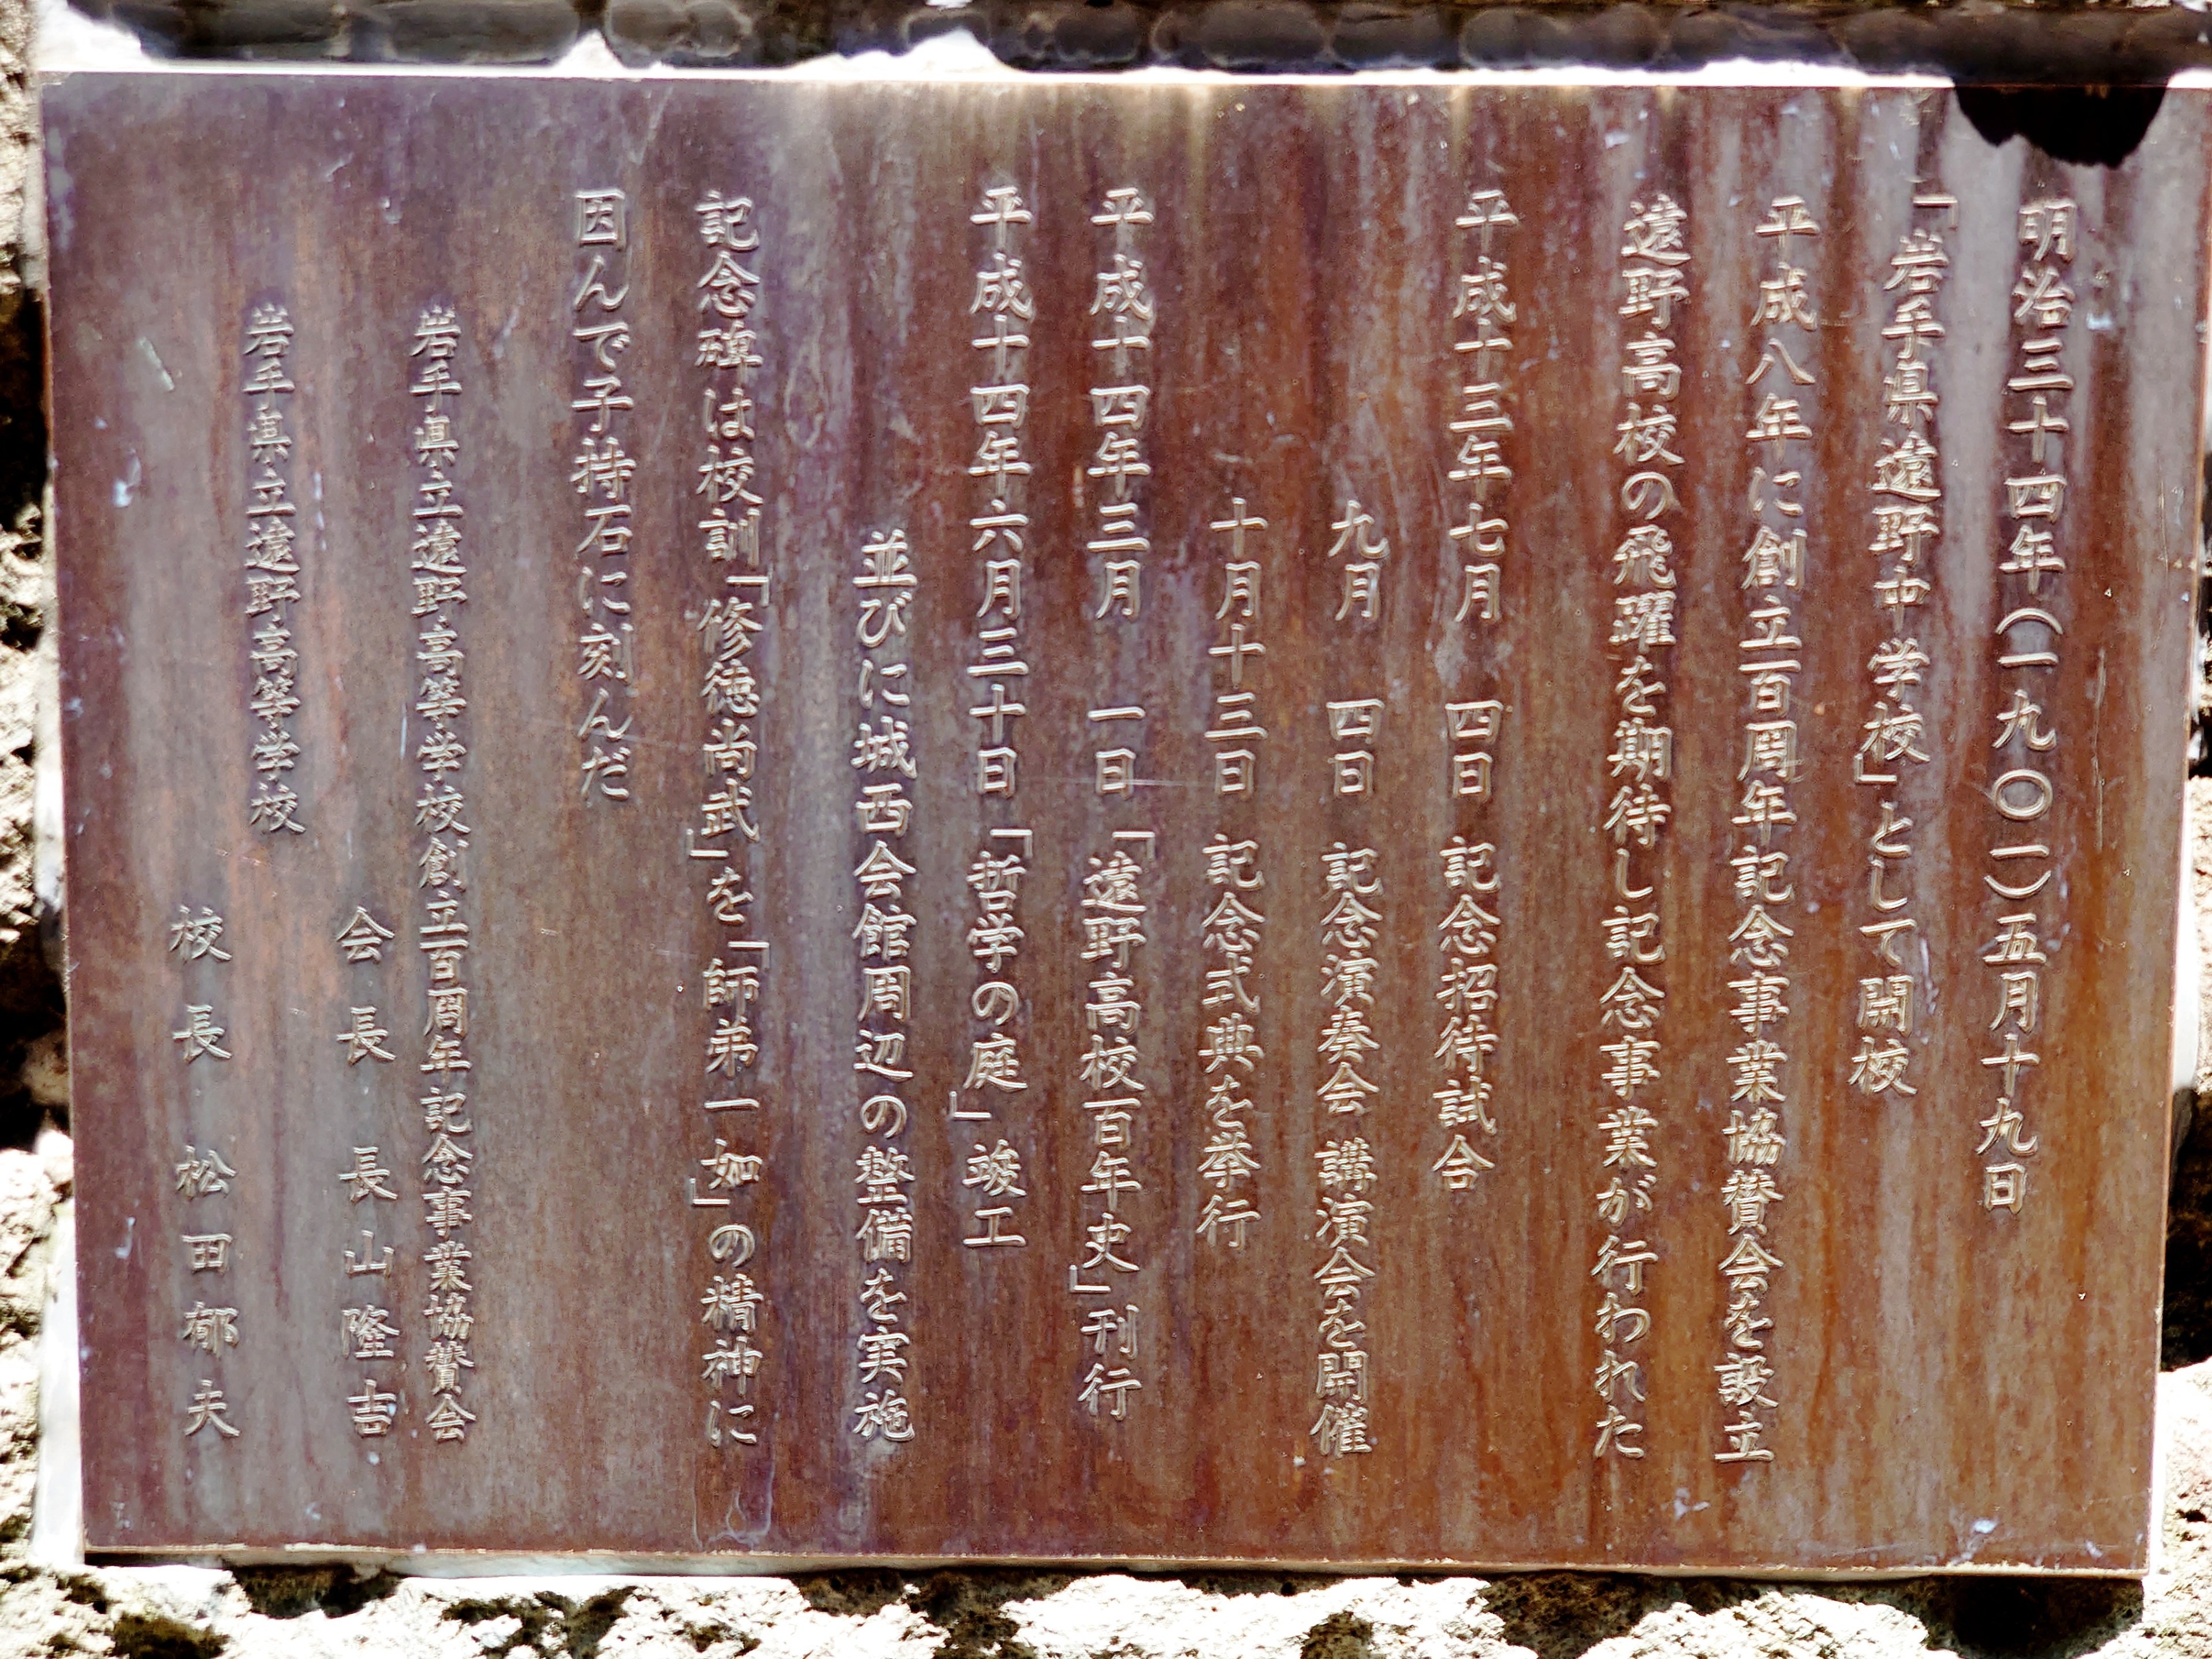 明治三十四年(一九〇一)五月十九日
「岩手県遠野中学校」として開校
平成八年に創立百周年記念事業協賛会を設立
遠野高校の飛躍を期待し記念事業が行われた
平成十三年七月 四日 記念招待試合
九月 四日 記念演奏会 講演会を開催
十月十三日 記念式典を挙行
平成十四年三月 一日「遠野高校百年史」刊行
平成十四年六月三十日「哲学の庭」竣工
並びに城西会館周辺の整備を実施
記念碑は校訓「修徳尚武」を「師弟一如」の精神に
因んで子持石に刻んだ
岩手県立遠野高等学校創立百周年記念事業協賛会
会長 長山隆吉
岩手県立遠野高等学校
校長 松田郁夫